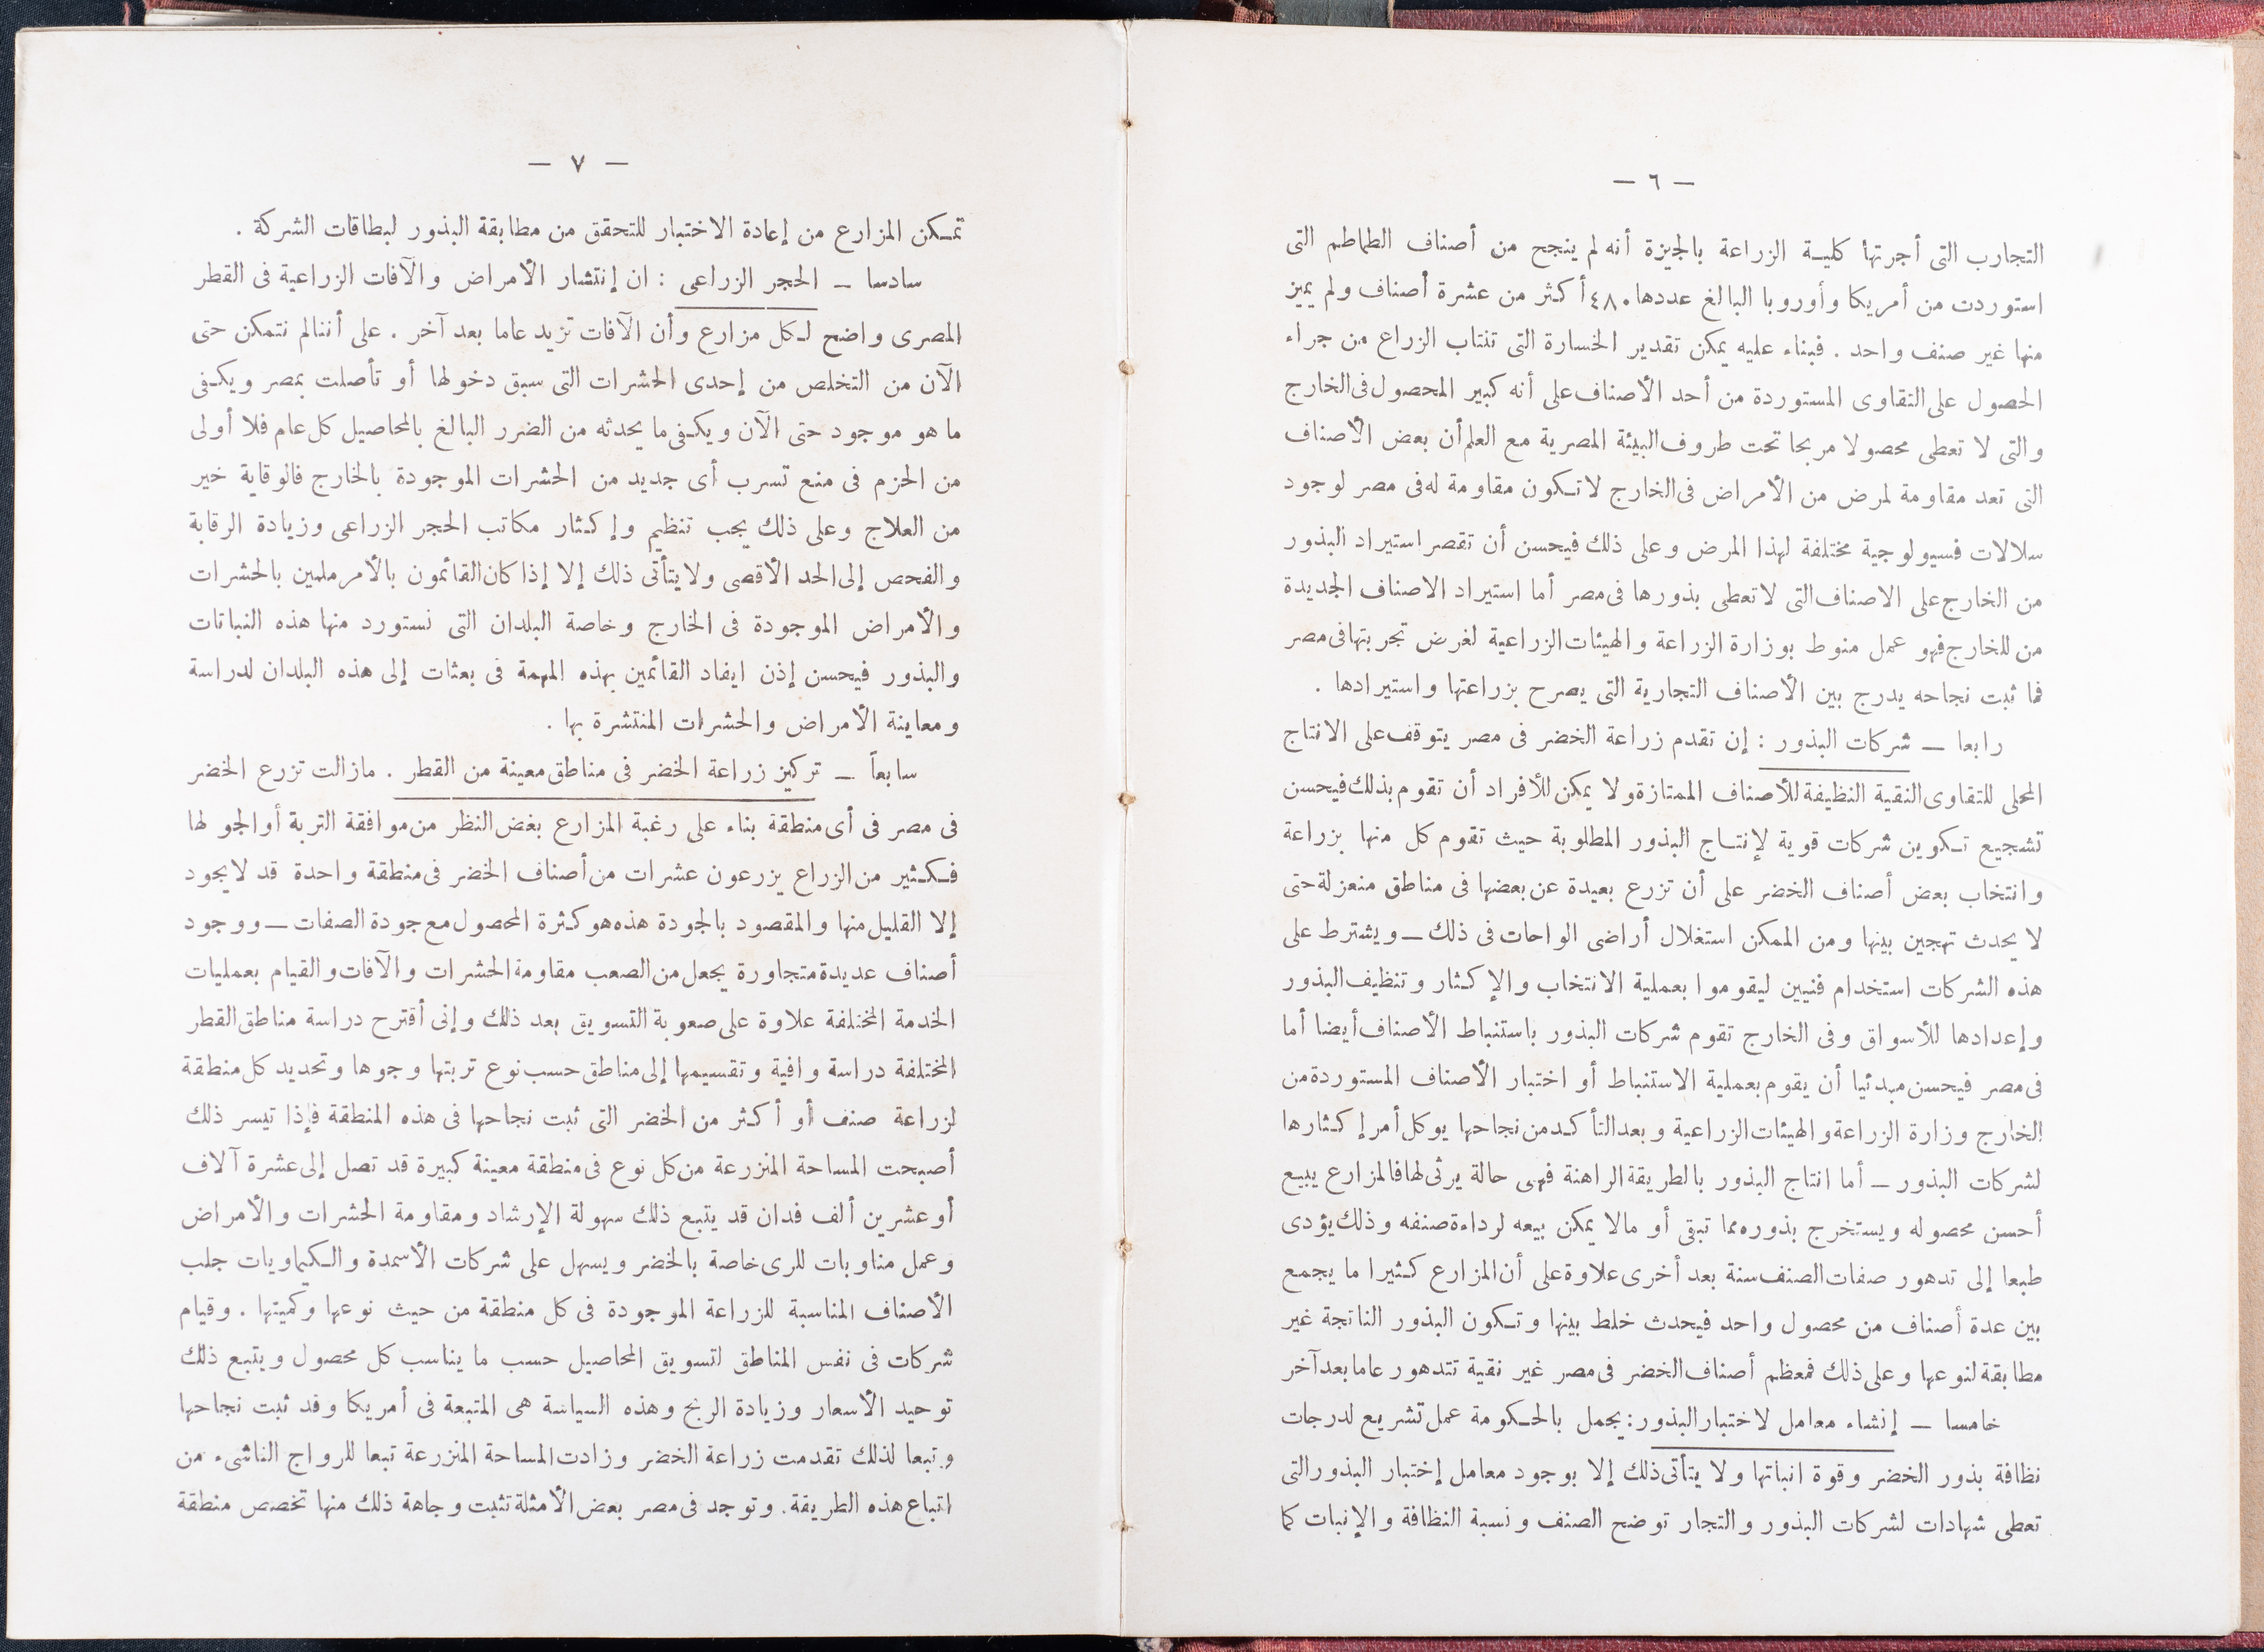 — ٦ —
التجارب التى أجرتها كلية الزراعة بالجيزة أنه لم ينجح من أصناف الطماطم التى
استوردت من أمريكا وأوروبا البالغ عددها ٤٨٠ أكثر من عشرة أصناف ولم يميز
منها غير صنف واحد . فبناء عليه يمكن تقدير الخسارة التى تنتاب الزراع من جراء
الحصول على التقاوى المستوردة من أحد الأصناف على أنه كبير المحصول فى الخارج
والتى لا تعطى محصولا مربحا تحت ظروف البيئة المصرية مع العلم أن بعض الأصناف
التى تعد مقاومة لمرض من الأمراض فى الخارج لا تكون مقاومة له فى مصر لوجود
سلالات فسيولوجية مختلفة لهذا المرض وعلى ذلك فيحسن أن تقصر استيراد البذور
من الخارج على الاصناف التى لا تعطى بذورها فى مصر أما استيراد الاصناف الجديدة
من للخارج فهو عمل منوط بوزارة الزراعة والهيئات الزراعية لغرض تجربتها فى مصر
فما ثبت نجاحه يدرج بين الأصناف التجارية التى يصرح بزراعتها واستيرادها .
رابعا — شركات البذور : إن تقدم زراعة الخضر فى مصر يتوقف على الانتاج
المحلى للتقاوى النقية النظيفة للأصناف الممتازة ولا يمكن للأفراد أن تقوم بذلك فيحسن
تشجيع تكوين شركات قوية لإنتاج البذور المطلوبة حيث تقوم كل منها بزراعة
وانتخاب بعض أصناف الخضر على أن تزرع بعيدة عن بعضها فى مناطق منعزلة حتى
لا يحدث تهجين بينها ومن الممكن استغلال أراضى الواحات فى ذلك — ويشترط على
هذه الشركات استخدام فنيين ليقوموا بعملية الانتخاب والإكثار وتنظيف البذور
وإعدادها للأسواق وفى الخارج تقوم شركات البذور باستنباط الأصناف أيضا أما
فى مصر فيحسن مبدئيا أن يقوم بعملية الاستنباط أو اختبار الأصناف المستوردة من
الخارج وزارة الزراعة والهيئات الزراعية وبعد التأكد من نجاحها يوكل أمر إكثارها
لشركات البذور — أما انتاج البذور بالطريقة الراهنة فهى حالة يرثى لها فالمزارع يبيع
أحسن محصوله ويستخرج بذوره مما تبقى أو مالا يمكن بيعه لرداءة صنفه وذلك يؤدى
طبعا إلى تدهور صفات الصنف سنة بعد أخرى علاوة على أن المزارع كثيرا ما يجمع
بين عدة أصناف من محصول واحد فيحدث خلط بينها وتكون البذور الناتجة غير
مطابقة لنوعها وعلى ذلك فمعظم أصناف الخضر فى مصر غير نقية تتدهور عاما بعد آخر
خامسا — إنشاء معامل لاختبار البذور : يجمل بالحكومة عمل تشريع لدرجات
نظافة بذور الخضر وقوة انباتها ولا يتأتى ذلك إلا بوجود معامل إختبار البذور التى
تعطى شهادات لشركات البذور والتجار توضح الصنف ونسبة النظافة والإنبات كما
— ٧ —
تمكن المزارع من إعادة الاختبار للتحقق من مطابقة البذور لبطاقات الشركة .
سادسا — الحجر الزراعى : ان إنتشار الأمراض والآفات الزراعية فى القطر
المصرى واضح لكل مزارع وأن الآفات تزيد عاما بعد آخر . على أننالم نتمكن حتى
الآن من التخلص من إحدى الحشرات التى سبق دخولها أو تأصلت بمصر ويكفى
ما هو موجود حتى الآن ويكفى ما يحدثه من الضرر البالغ بالمحاصيل كل عام فلا أولى
من الحزم فى منع تسرب أى جديد من الحشرات الموجودة بالخارج فالوقاية خير
من العلاج وعلى ذلك يجب تنظيم وإكثار مكاتب الحجر الزراعى وزيادة الرقابة
والفحص إلى الحد الأقصى ولا يتأتى ذلك إلا إذا كان القائمون بالأمر ملمين بالحشرات
والأمراض الموجودة فى الخارج وخاصة البلدان التى نستورد منها هذه النباتات
والبذور فيحسن إذن ايفاد القائمين بهذه المهمة فى بعثات إلى هذه البلدان لدراسة
ومعاينة الأمراض والحشرات المنتشرة بها .
سابعاً — تركيز زراعة الخضر فى مناطق معينة من القطر . مازالت تزرع الخضر
فى مصر فى أى منطقة بناء على رغبة المزارع بغض النظر من موافقة التربة أو الجو لها
فكثير من الزراع يزرعون عشرات من أصناف الخضر فى منطقة واحدة قد لا يجود
إلا القليل منها والمقصود بالجودة هذه هو كثرة المحصول مع جودة الصفات — ووجود
أصناف عديدة متجاورة يجعل من الصعب مقاومة الحشرات والآفات والقيام بعمليات
الخدمة المختلفة علاوة على صعوبة التسويق بعد ذلك وإنى أقترح دراسة مناطق القطر
المختلفة دراسة وافية وتقسيمها إلى مناطق حسب نوع تربتها وجوها وتحديد كل منطقة
لزراعة صنف أو أكثر من الخضر التى ثبت نجاحها فى هذه المنطقة فإذا تيسر ذلك
أصبحت المساحة المنزرعة من كل نوع فى منطقة معينة كبيرة قد تصل إلى عشرة آلاف
أو عشرين ألف فدان قد يتبع ذلك سهولة الإرشاد ومقاومة الحشرات والأمراض
وعمل مناوبات للرى خاصة بالخضر ويسهل على شركات الأسمدة والكيماويات جلب
الأصناف المناسبة للزراعة الموجودة فى كل منطقة من حيث نوعها وكميتها . وقيام
شركات فى نفس المناطق لتسويق المحاصيل حسب ما يناسب كل محصول ويتبع ذلك
توحيد الأسعار وزيادة الربح وهذه السياسة هى المتبعة فى أمريكا وقد ثبت نجاحها
وتبعا لذلك تقدمت زراعة الخضر وزادت المساحة المنزرعة تبعا للرواج الناشىء من
اتباع هذه الطريقة. وتوجد فى مصر بعض الأمثلة تثبت وجاهة ذلك منها تخصص منطقة